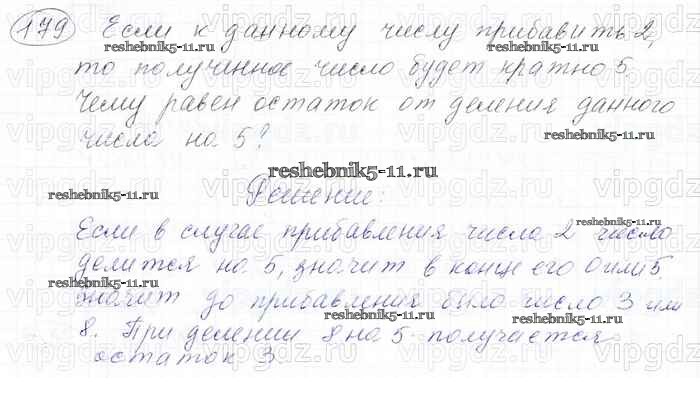 179 Если к данному числу прибавить 2,
reshebnik5-11.ru reshebnik5-11.ru
то полученное число будет кратно 5.
Чему равен остаток от деления данного
reshebnik5-11.ru
числа на 5?
reshebnik5-11.ru
reshebnik5-11.ru
Решение:
reshebnik5-11.ru
Если в случае прибавления числа 2 число
делится на 5, значит в конце его 0 или 5
reshebnik5-11.ru
значит до прибавления было число 3 или
reshebnik5-11.ru reshebnik5-11.ru
8. При делении 8 на 5 получается
остаток 3.
vipgdz.ru vipgdz.ru vipgdz.ru vipgdz.ru